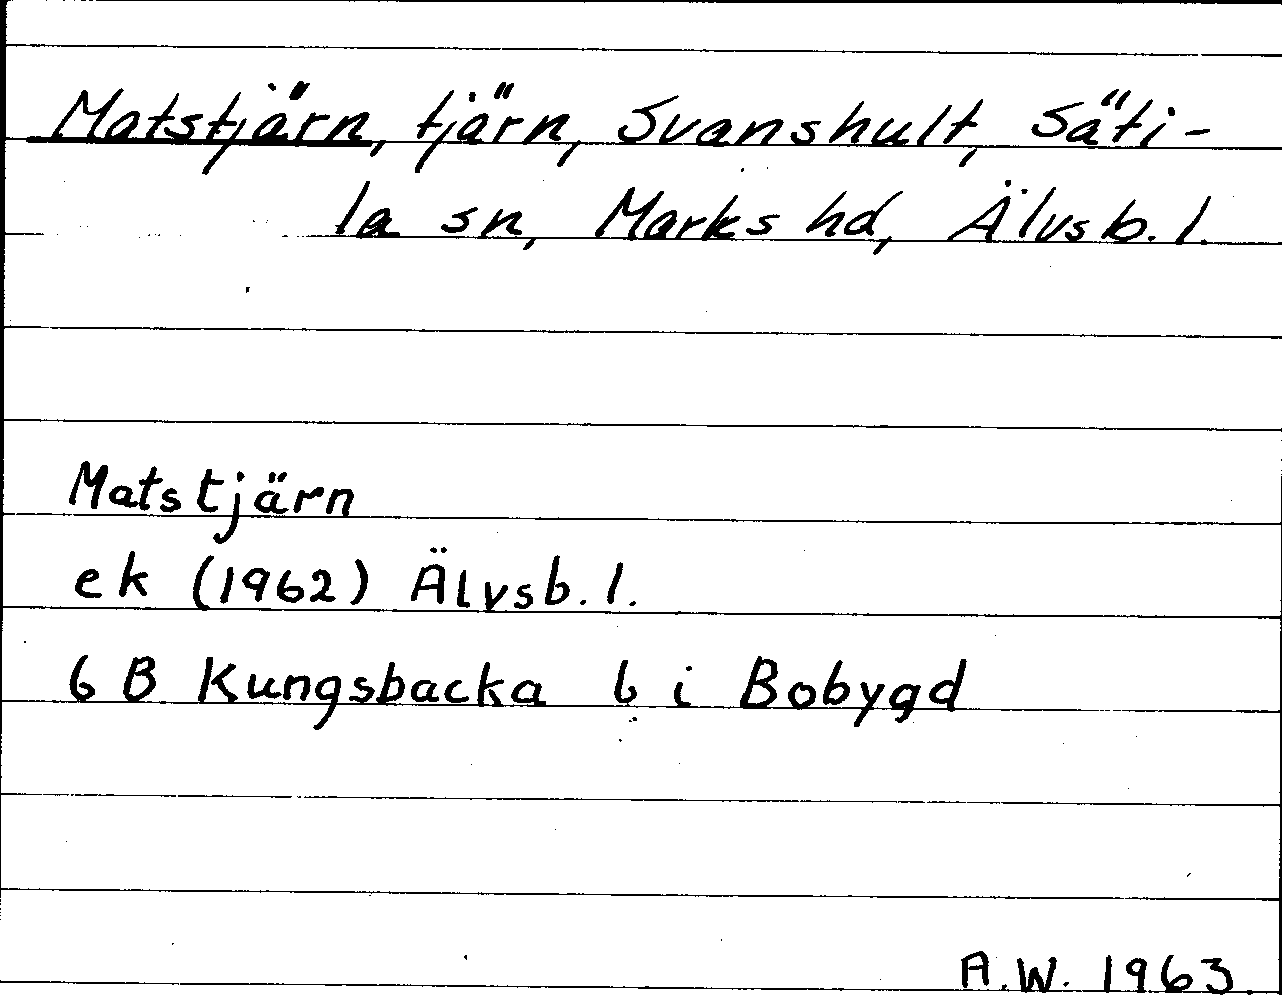 Matstjärn, tjärn, Svanshult, Säti-
la sn, Marks hd, Älvsb. l.
Matstjärn
ek (1962) Älvsb. l.
6 B Kungsbacka 6 i Bobygd
A.W. 1963.